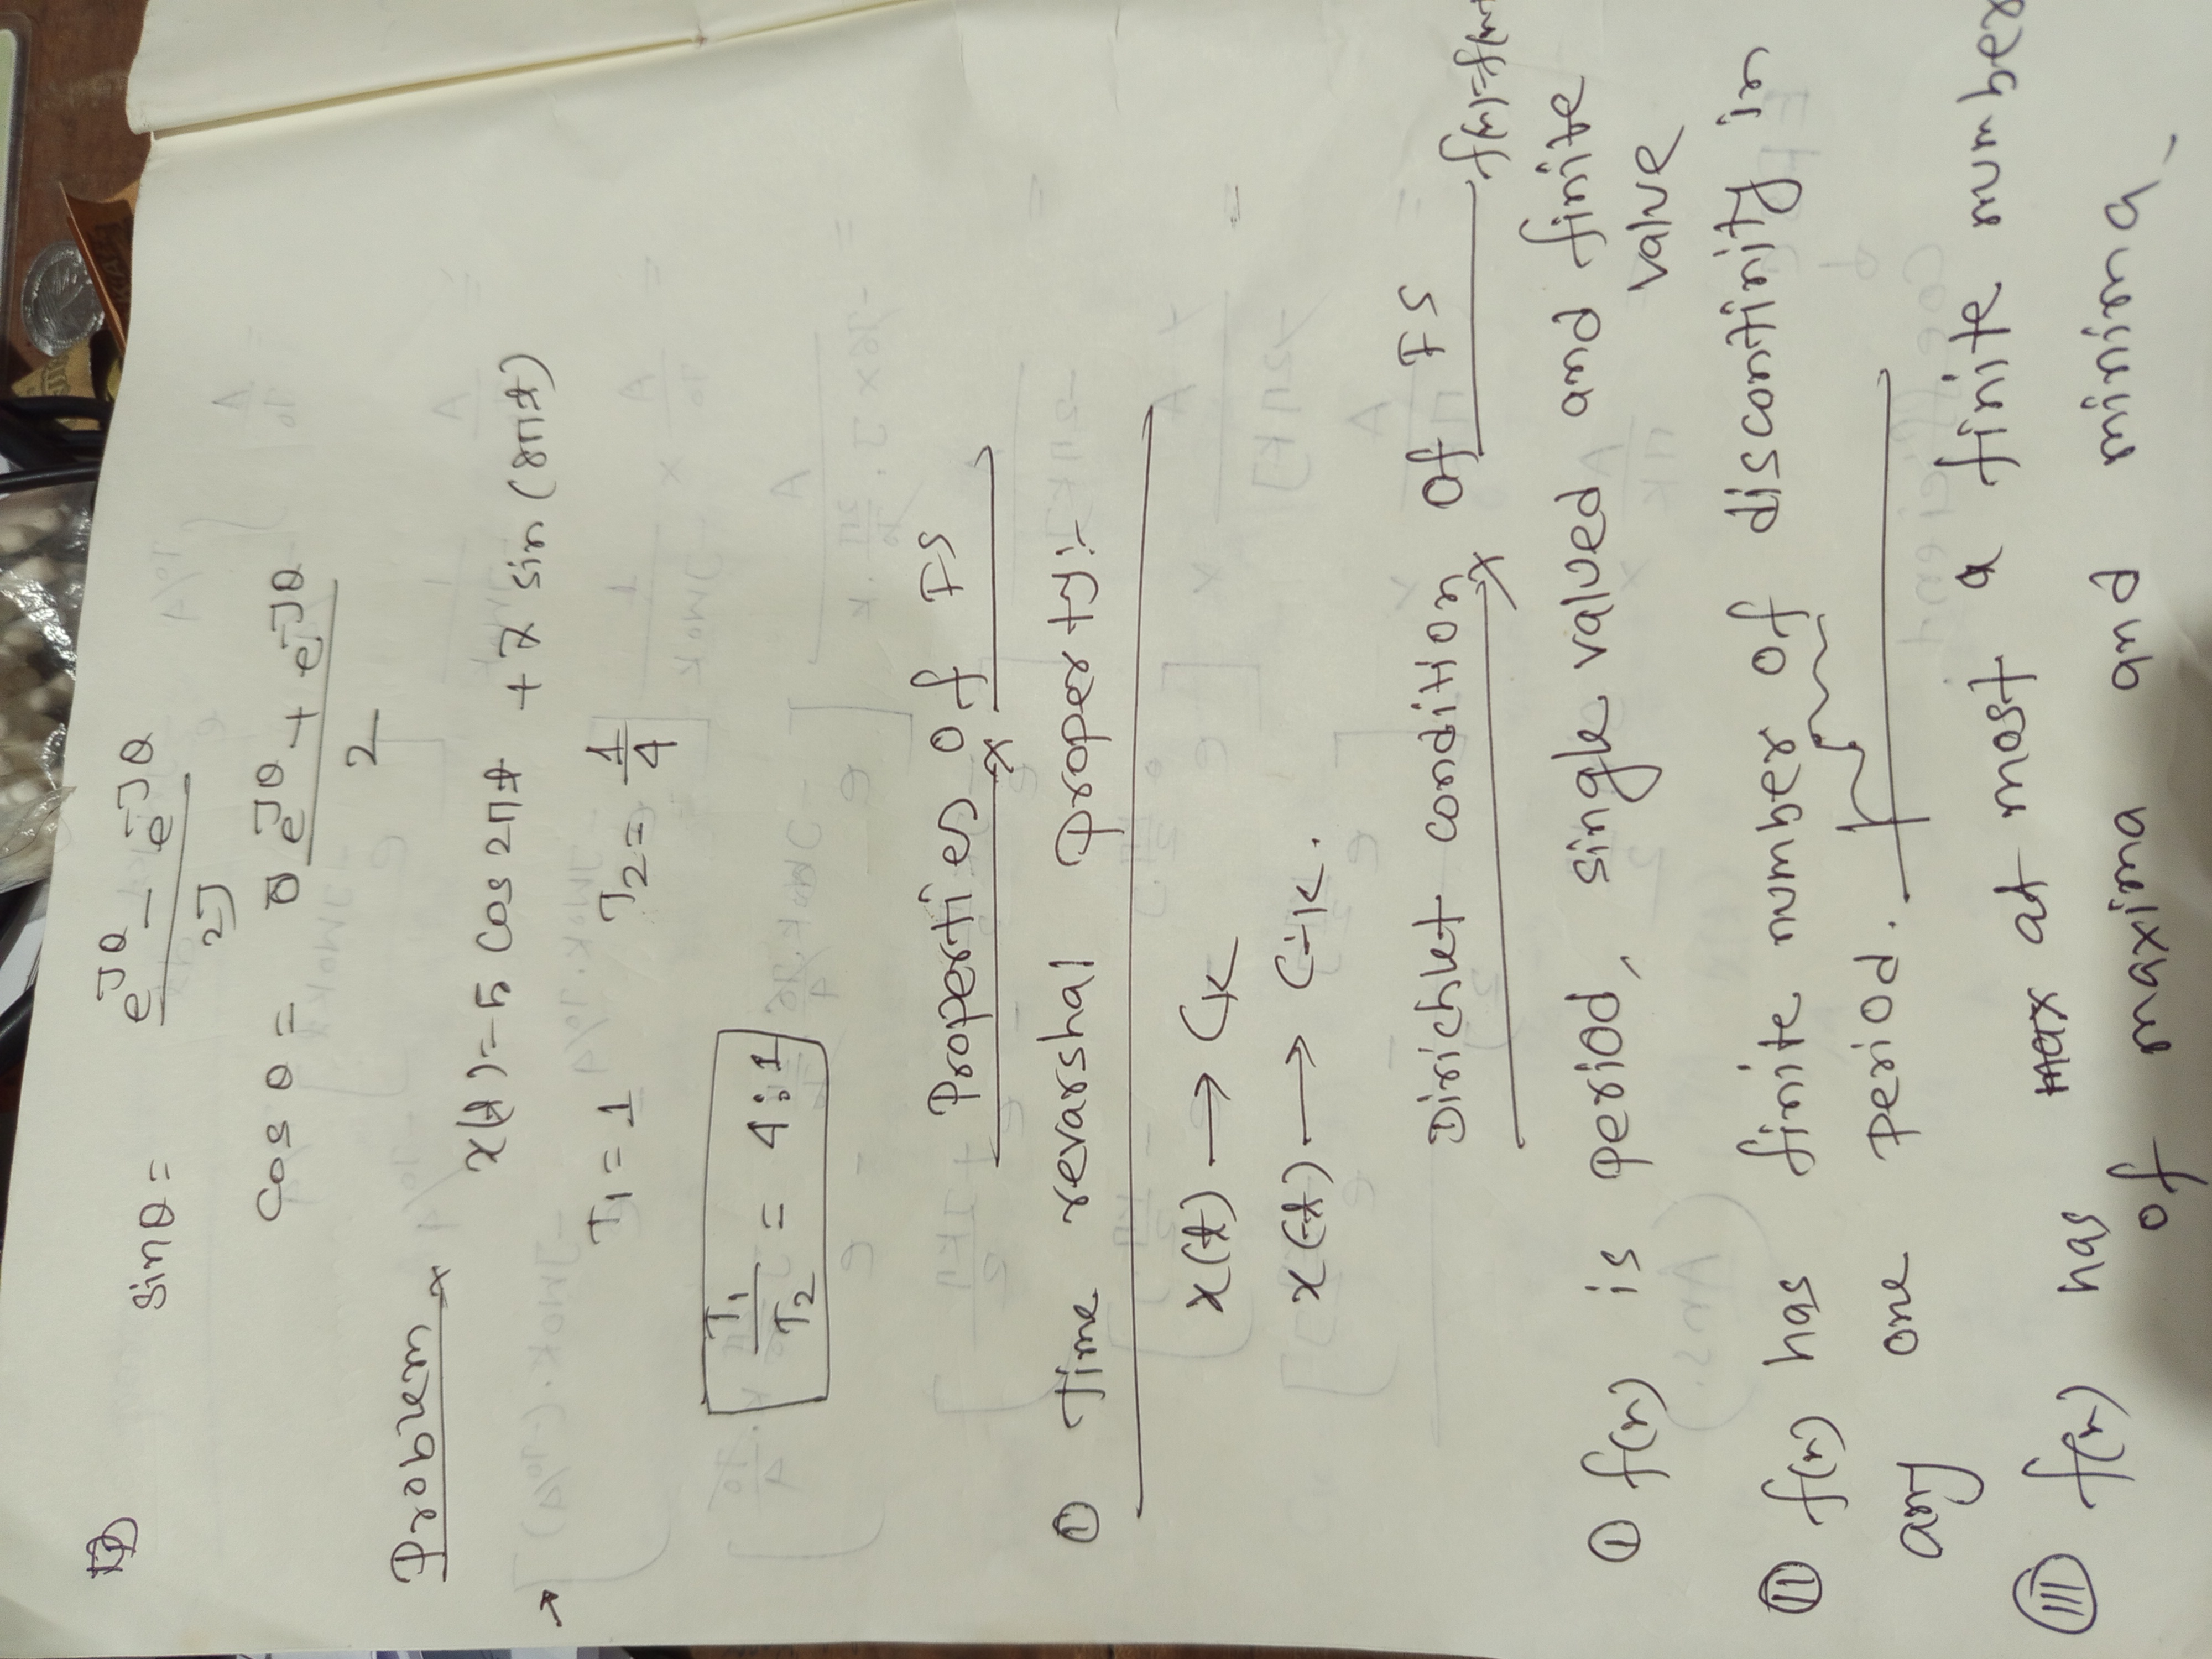 sinθ = (e^Jθ - e^-Jθ) / 2J
cos θ = (e^Jθ + e^-Jθ) / 2
Problem
x(t) = 5 cos 2πt + 7 sin (8πt)
T1 = 1 T2 = 1/4
T1/T2 = 4:1
Properties of FS
① Time revarshal property:-
x(t) → CK
x(-t) → C-K.
Dirichlet condition of FS
f(n)=f(n+
① f(n) is period, single valued and finite
value
② f(n) has finite number of discontinity in
any one period.
③ f(n) has at most a finite number
of maxima and minima